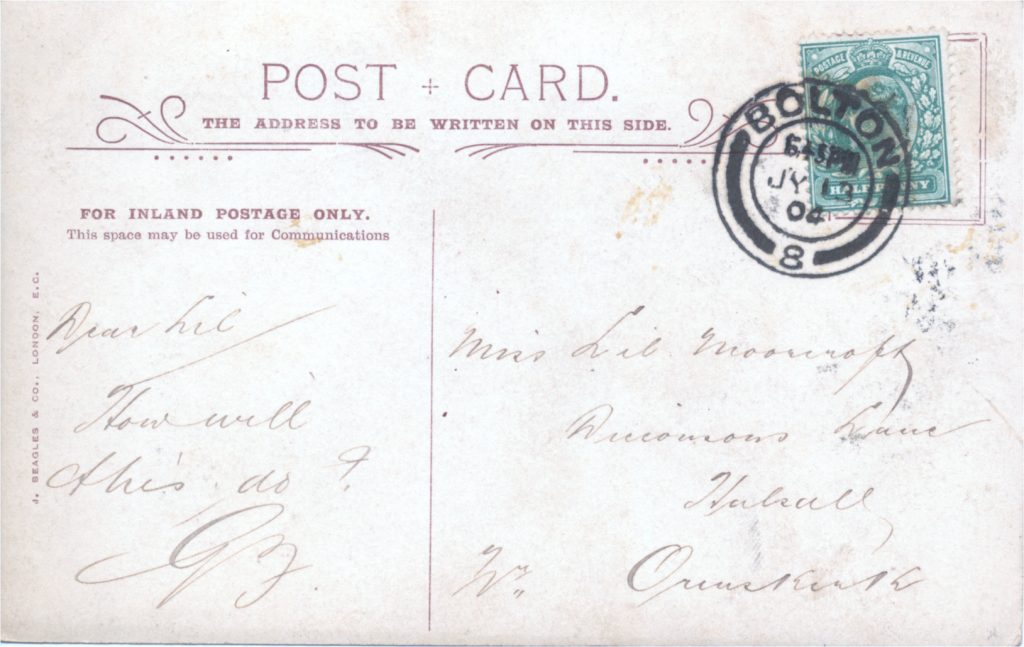 POST + CARD.
THE ADDRESS TO BE WRITTEN ON THIS SIDE.
POSTAGE & REVENUE
HALFPENNY
BOLTON
6 45 PM
JY 13
04
8
FOR INLAND POSTAGE ONLY.
This space may be used for Communications
J. BEAGLES & CO., LONDON, E.C.
Dear Lil
How will
this do?
Miss Lil Moorcroft
Dicconsons Lane
Halsall
Nr. Ormskirk